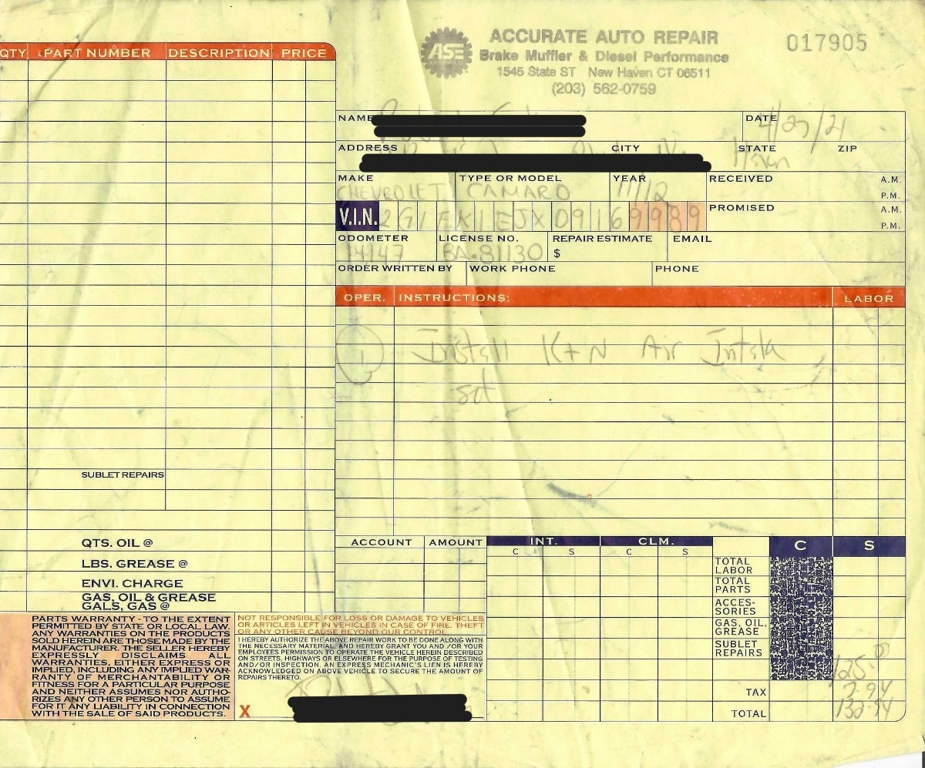 ASE
ACCURATE AUTO REPAIR
Brake Muffler & Diesel Performance
1545 State ST New Haven CT 06511
(203) 562-0759
017905
QTY PART NUMBER DESCRIPTION PRICE
SUBLET REPAIRS
QTS. OIL @
LBS. GREASE @
ENVI. CHARGE
GAS, OIL & GREASE
GALS, GAS @
NAME DATE 4/27/21
ADDRESS CITY STATE ZIP
MAKE TYPE OR MODEL YEAR RECEIVED A.M.
CHEVROLET CAMARO P.M.
V.I.N. 2G1FK1EJX09169989 PROMISED A.M.
P.M.
ODOMETER LICENSE NO. REPAIR ESTIMATE EMAIL
14147 BA-81130 $
ORDER WRITTEN BY WORK PHONE PHONE
OPER. INSTRUCTIONS: LABOR
1 Install K+N Air Intak
ACCOUNT AMOUNT INT. CLM. C S
C S C S
TOTAL LABOR
TOTAL PARTS
ACCES-
SORIES
GAS, OIL,
GREASE
SUBLET
REPAIRS
TAX
TOTAL
PARTS WARRANTY - TO THE EXTENT
PERMITTED BY STATE OR LOCAL LAW.
ANY WARRANTIES ON THE PRODUCTS
SOLD HEREIN ARE THOSE MADE BY THE
MANUFACTURER. THE SELLER HEREBY
EXPRESSLY DISCLAIMS ALL
WARRANTIES, EITHER EXPRESS OR
IMPLIED, INCLUDING ANY IMPLIED WAR-
RANTY OF MERCHANTABILITY OR
FITNESS FOR A PARTICULAR PURPOSE
AND NEITHER ASSUMES NOR AUTHO-
RIZES ANY OTHER PERSON TO ASSUME
FOR IT ANY LIABILITY IN CONNECTION
WITH THE SALE OF SAID PRODUCTS.
NOT RESPONSIBLE FOR LOSS OR DAMAGE TO VEHICLES
OR ARTICLES LEFT IN VEHICLES IN CASE OF FIRE. THEFT
OR ANY OTHER CAUSE BEYOND OUR CONTROL.
I HEREBY AUTHORIZE THE ABOVE REPAIR WORK TO BE DONE ALONG WITH
THE NECESSARY MATERIAL, AND HEREBY GRANT YOU AND /OR YOUR
EMPLOYEES PERMISSION TO OPERATE THE VEHICLE HEREIN DESCRIBED
ON STREETS, HIGHWAYS OR ELSEWHERE FOR THE PURPOSE OF TESTING
AND/OR INSPECTION. AN EXPRESS MECHANIC'S LIEN IS HEREBY
ACKNOWLEDGED ON ABOVE VEHICLE TO SECURE THE AMOUNT OF
REPAIRS THERETO.
X